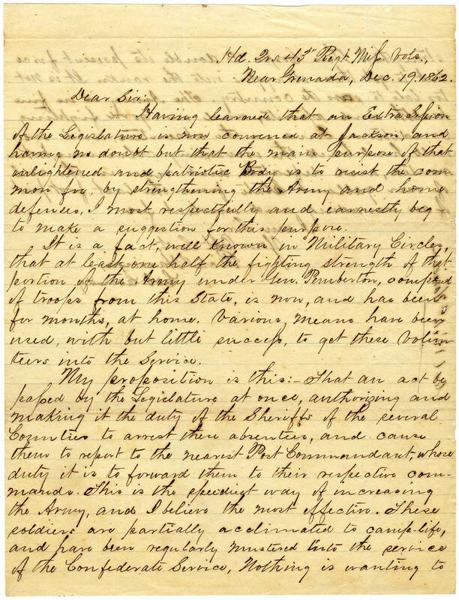 Hd. Qrs 43d Regt Mi Vols.,
Near Grenada, Dec. 19. 1862.
Dear Sir:
Having learned that an Extra Session
of the Legislature is now convened at Jackson, and
having no doubt but that the main purpose of that
enlightened and patriotic Body is to resist the com
mon foe, by strengthening the Army and home
defences, I most respectfully and earnestly beg
to make a suggestion for this purpose.
It is a fact, well known in Military Circles,
that at least one half the fighting strength of that
portion of the Army under Gen. Pemberton, composed
of troops from this State, is now, and has been
for months, at home. Various, means have been
used, with but little success, to get these Volun
teers into the Service.
My proposition is this:- That an act be
passed by the Legislature at once, authorizing and
making it the duty of the Sheriffs of the several
Counties to arrest these absentees, and cause
them to report to the nearest Post Commandant, whose
duty it is to forward them to their respective com-
mands. This is the speediest way of increasing
the Army, and I believe the most effective. These
soldiers are partially acclimated to camp-life,
and have been regularly mustered into the service
of the Confederate Service, Nothing is wanting to